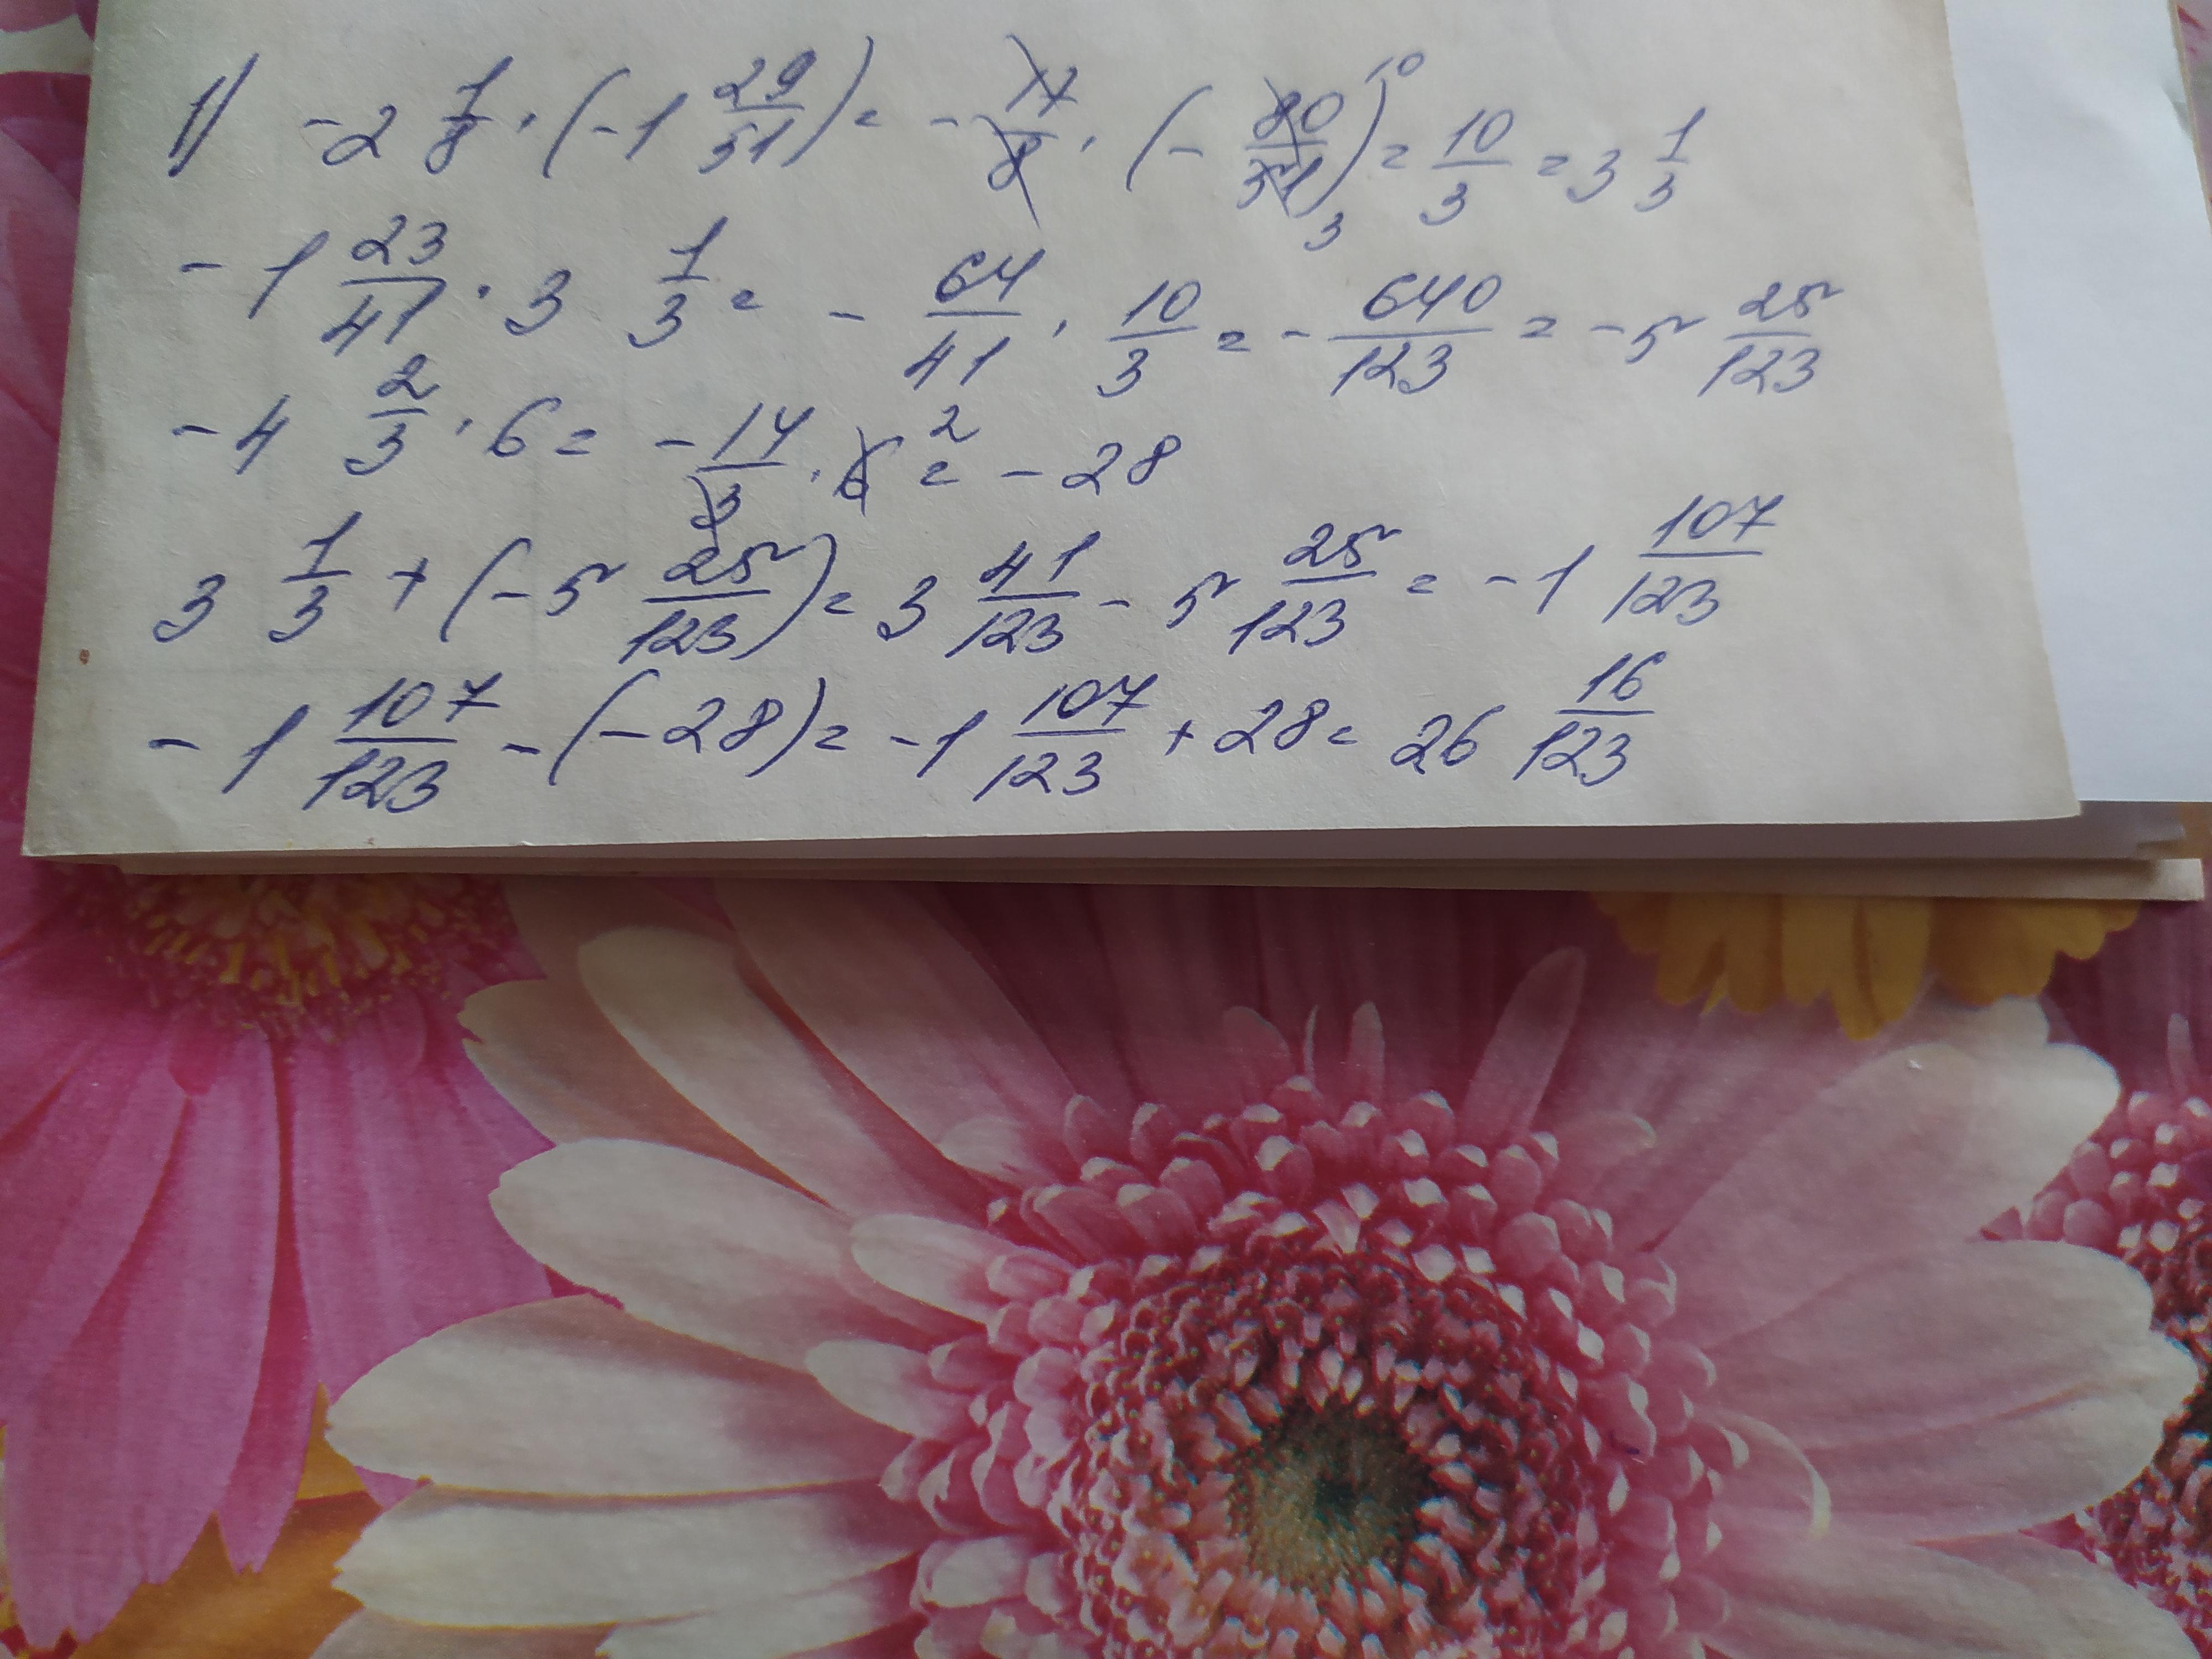 1) -2 1/8 · (-1 29/51) = - 17/8 · (- 80/51) 10 3 = 10/3 = 3 1/3
- 1 23/41 · 3 1/3 = - 64/41 · 10/3 = - 640/123 = - 5 25/123
- 4 2/3 · 6 = - 14/3 · 6 2 = - 28
3 1/3 + (- 5 25/123) = 3 41/123 - 5 25/123 = - 1 107/123
- 1 107/123 - (- 28) = - 1 107/123 + 28 = 26 16/123